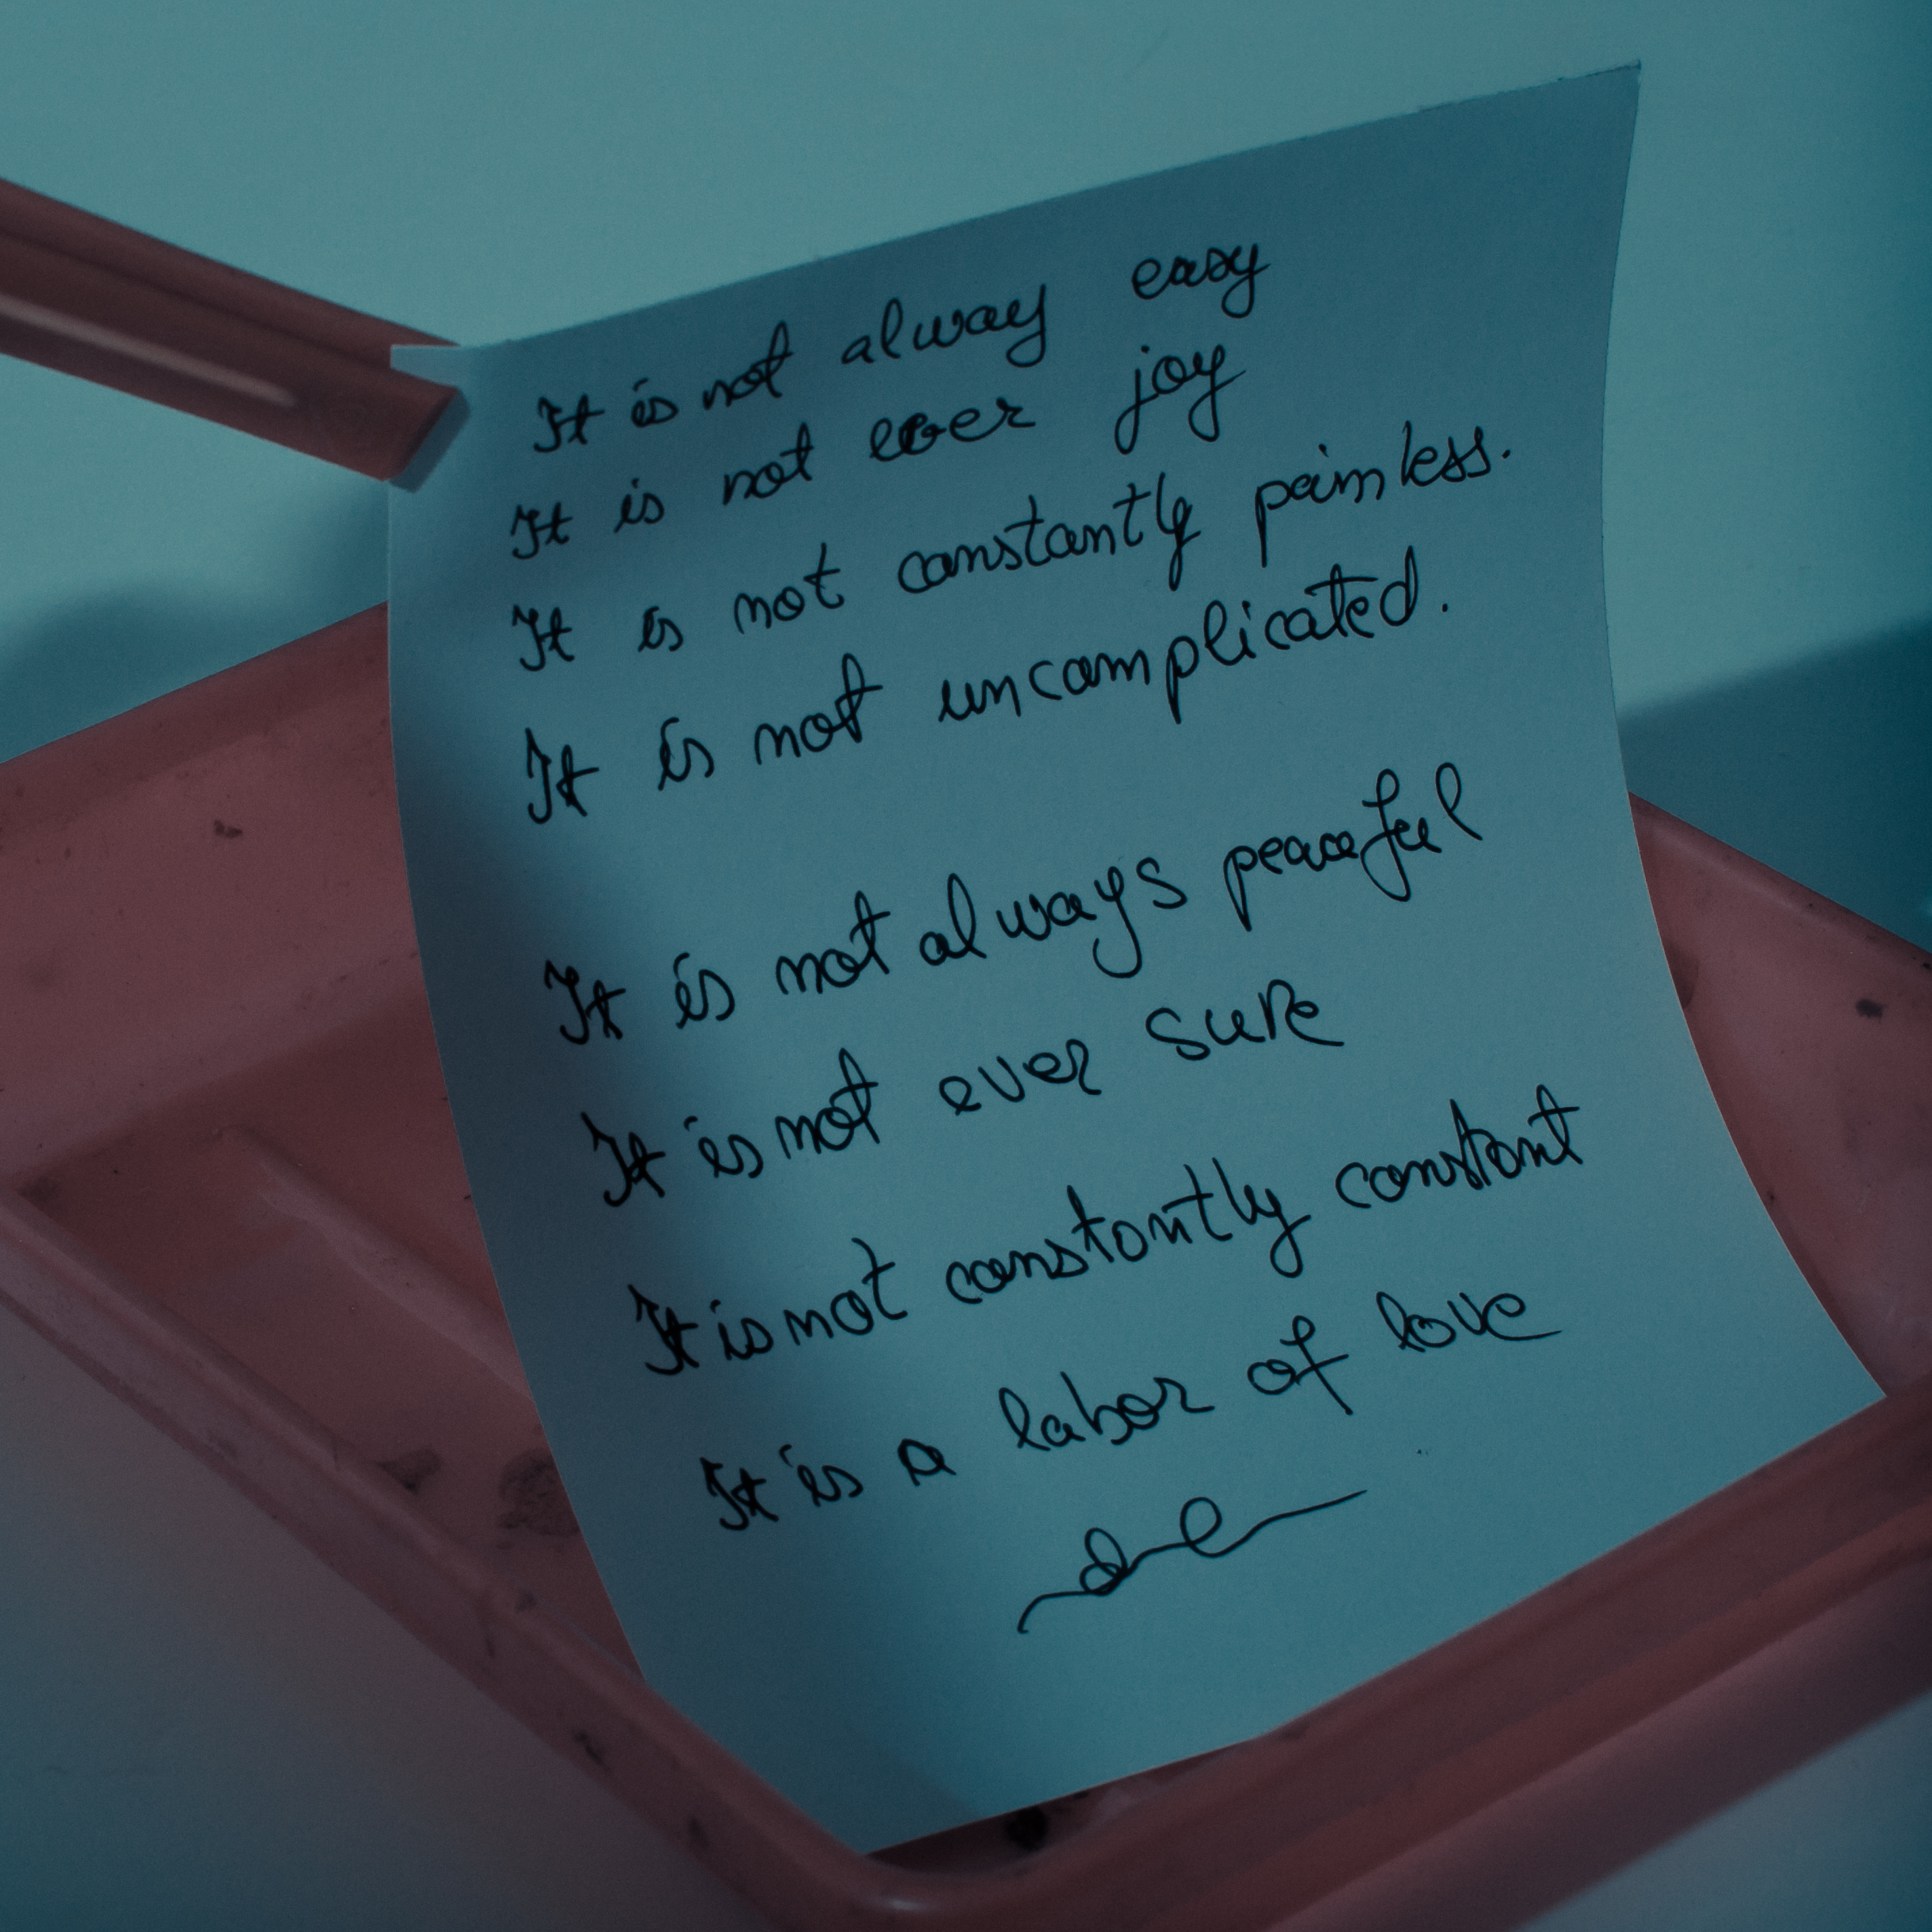 It is not alway easy
It is not ever joy
It is not constantly painless.
It is not uncomplicated.
It is not always peaceful
It is not ever sure
It is not constantly constant
It is a labor of love